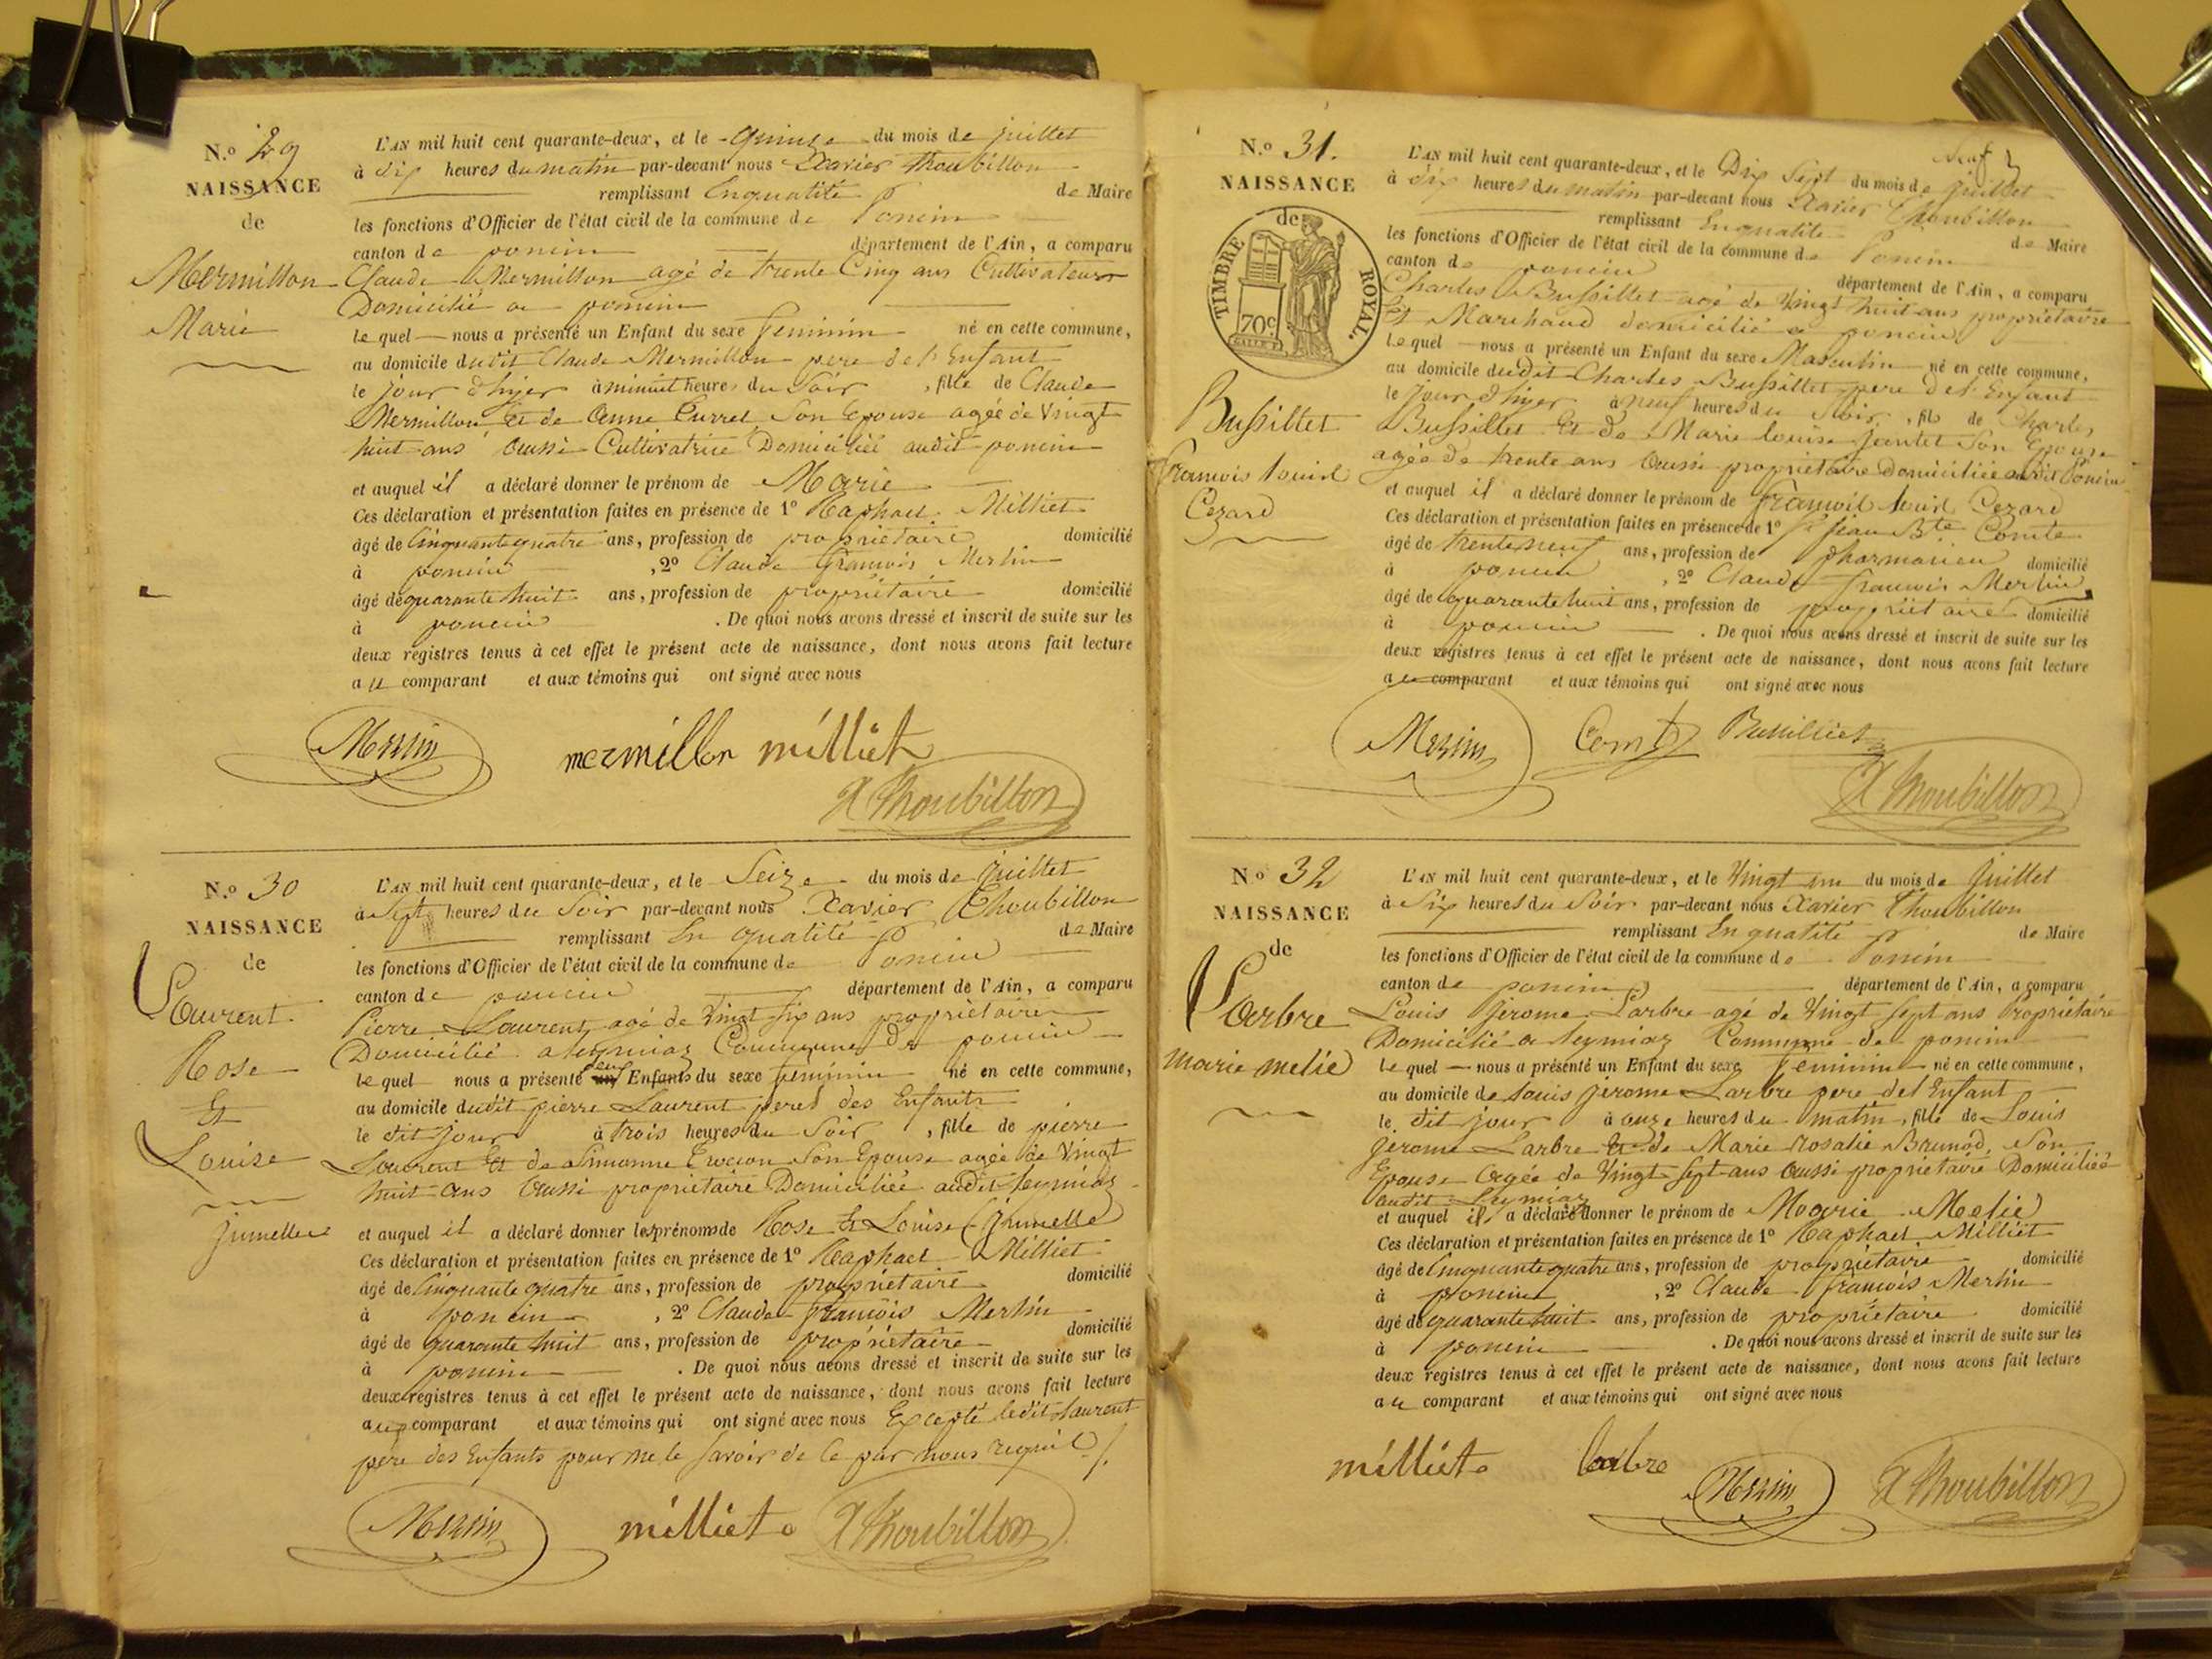 N.o 29
NAISSANCE
de
Mermillon
Marie
L'AN mil huit cent quarante-deux, et le quinze du mois de juillet
à dix heures du matin par-devant nous Xavier Thoubillon
remplissant En qualité de Maire
les fonctions d'Officier de l'état civil de la commune de Poncin
canton de poncin département de l'Ain, a comparu
Claude Mermillon agé de trente Cinq ans Cultivateur
Domicilié a poncin
le quel nous a présenté un Enfant du sexe feminin né en cette commune,
au domicile dudit Claude Mermillon pere de l'Enfant
le jour d'hyer à minuit heures du Soir, fille de Claude
Mermillon et de Anne Curret Son Epouse agée de Vingt
huit ans aussi Cultivatrice Domiciliée audit poncin
et auquel il a déclaré donner le prénom de Marie
Ces déclaration et présentation faites en présence de 1o Raphael Milliet
âgé de Cinquante quatre ans, profession de propriétaire domicilié
à poncin, 2o Claude François Merlin
âgé de quarante huit ans, profession de propriétaire domicilié
à poncin. De quoi nous avons dressé et inscrit de suite sur les
deux registres tenus à cet effet le présent acte de naissance, dont nous avons fait lecture
au comparant et aux témoins qui ont signé avec nous
Merlin mermillon milliet
X Thoubillon
N.o 30
NAISSANCE
de
Laurent
Rose
Et
Louise
jumelles
L'AN mil huit cent quarante-deux, et le Seize du mois de juillet
à Sept heures du Soir par-devant nous Xavier Thoubillon
remplissant En qualité de Maire
les fonctions d'Officier de l'état civil de la commune de Poncin
canton de poncin département de l'Ain, a comparu
Pierre Laurent agé de Vingt Six ans propriétaire
Domicilié a leymiaz Commune de poncin
le quel nous a présenté deux Enfants du sexe feminin né en cette commune,
au domicile dudit pierre Laurent pere des Enfants
le dit jour à trois heures du Soir, fille de pierre
Laurent Et de Simonne Son Epouse agée de Vingt
huit ans aussi propriétaire Domiciliée audit leymiaz
et auquel il a déclaré donner les prénoms de Rose Et Louise (Jumelle)
Ces déclaration et présentation faites en présence de 1o Raphael Milliet
âgé de Cinquante quatre ans, profession de propriétaire domicilié
à poncin, 2o Claude françois Merlin
âgé de quarante huit ans, profession de propriétaire domicilié
à poncin. De quoi nous avons dressé et inscrit de suite sur les
deux registres tenus à cet effet le présent acte de naissance, dont nous avons fait lecture
aux comparant et aux témoins qui ont signé avec nous Excepté ledit Laurent
père des Enfants pour ne le Savoir de Ce par nous requis
Merlin milliet X Thoubillon
N.o 31.
NAISSANCE
de
TIMBRE ROYAL.
70c
Bussillet
François Louis
Cezard
Neuf
L'AN mil huit cent quarante-deux, et le Dix Sept du mois de juillet
à dix heures du matin par-devant nous Xavier Thoubillon
remplissant En qualité de Maire
les fonctions d'Officier de l'état civil de la commune de Poncin
canton de poncin département de l'Ain, a comparu
Charles Bussillet agé de Vingt huit ans propriétaire
Et Marchand domicilié a poncin
le quel nous a présenté un Enfant du sexe Masculin né en cette commune,
au domicile dudit Charles Bussillet pere de l'Enfant
le jour d'hyer à neuf heures du Soir, fils de Charles
Bussillet Et de Marie louise Jantet Son Epouse
agée de trente ans aussi propriétaire Domiciliée audit Poncin
et auquel il a déclaré donner le prénom de François Louis Cezard
Ces déclaration et présentation faites en présence de 1o Jean Bte Comte
âgé de trente neuf ans, profession de pharmacien domicilié
à poncin, 2o Claude françois Merlin
âgé de quarante huit ans, profession de propriétaire domicilié
à poncin. De quoi nous avons dressé et inscrit de suite sur les
deux registres tenus à cet effet le présent acte de naissance, dont nous avons fait lecture
au comparant et aux témoins qui ont signé avec nous
Merlin Comte Bussilliet
X Thoubillon
No 32
NAISSANCE
de
Larbre
marie melie
L'AN mil huit cent quarante-deux, et le Vingt un du mois de Juillet
à Six heures du Soir par-devant nous Xavier Thoubillon
remplissant En qualité de Maire
les fonctions d'Officier de l'état civil de la commune de Poncin
canton de poncin département de l'Ain, a comparu
Louis Jerome Larbre agé de Vingt Sept ans Propriétaire
Domicilié a leymiaz Commune de poncin
le quel nous a présenté un Enfant du sexe feminin né en cette commune,
au domicile de Louis Jerome Larbre pere de l'Enfant
le dit jour à onze heures du matin, fille de Louis
Jerome Larbre Et de Marie Rosalie Brunod, Son
Epouse Agée de Vingt Sept ans aussi propriétaire Domiciliée
audit Leymiaz
et auquel il a déclaré donner le prénom de Marie Melie
Ces déclaration et présentation faites en présence de 1o Raphael Milliet
âgé de Cinquante quatre ans, profession de propriétaire domicilié
à poncin, 2o Claude françois Merlin
âgé de quarante huit ans, profession de propriétaire domicilié
à poncin. De quoi nous avons dressé et inscrit de suite sur les
deux registres tenus à cet effet le présent acte de naissance, dont nous avons fait lecture
au comparant et aux témoins qui ont signé avec nous
milliet larbre Merlin X Thoubillon